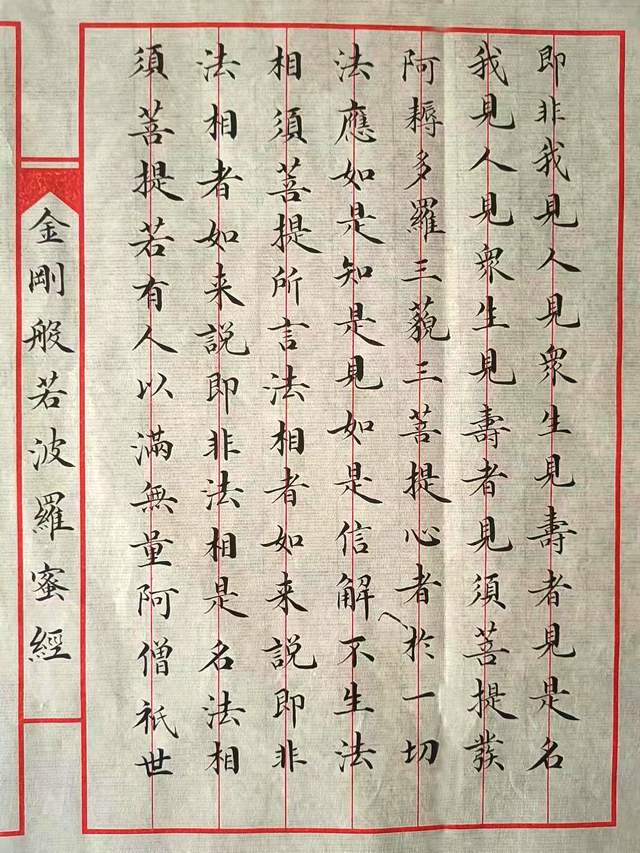 即非我見人見衆生見壽者見是名
我見人見衆生見壽者見須菩提發
阿耨多羅三藐三菩提心者於一切
法應如是知是見如是信解不生法
相須菩提所言法相者如来説即非
法相者如来説即非法相是名法相
須菩提若有人以滿無量阿僧祇世
金剛般若波羅蜜經